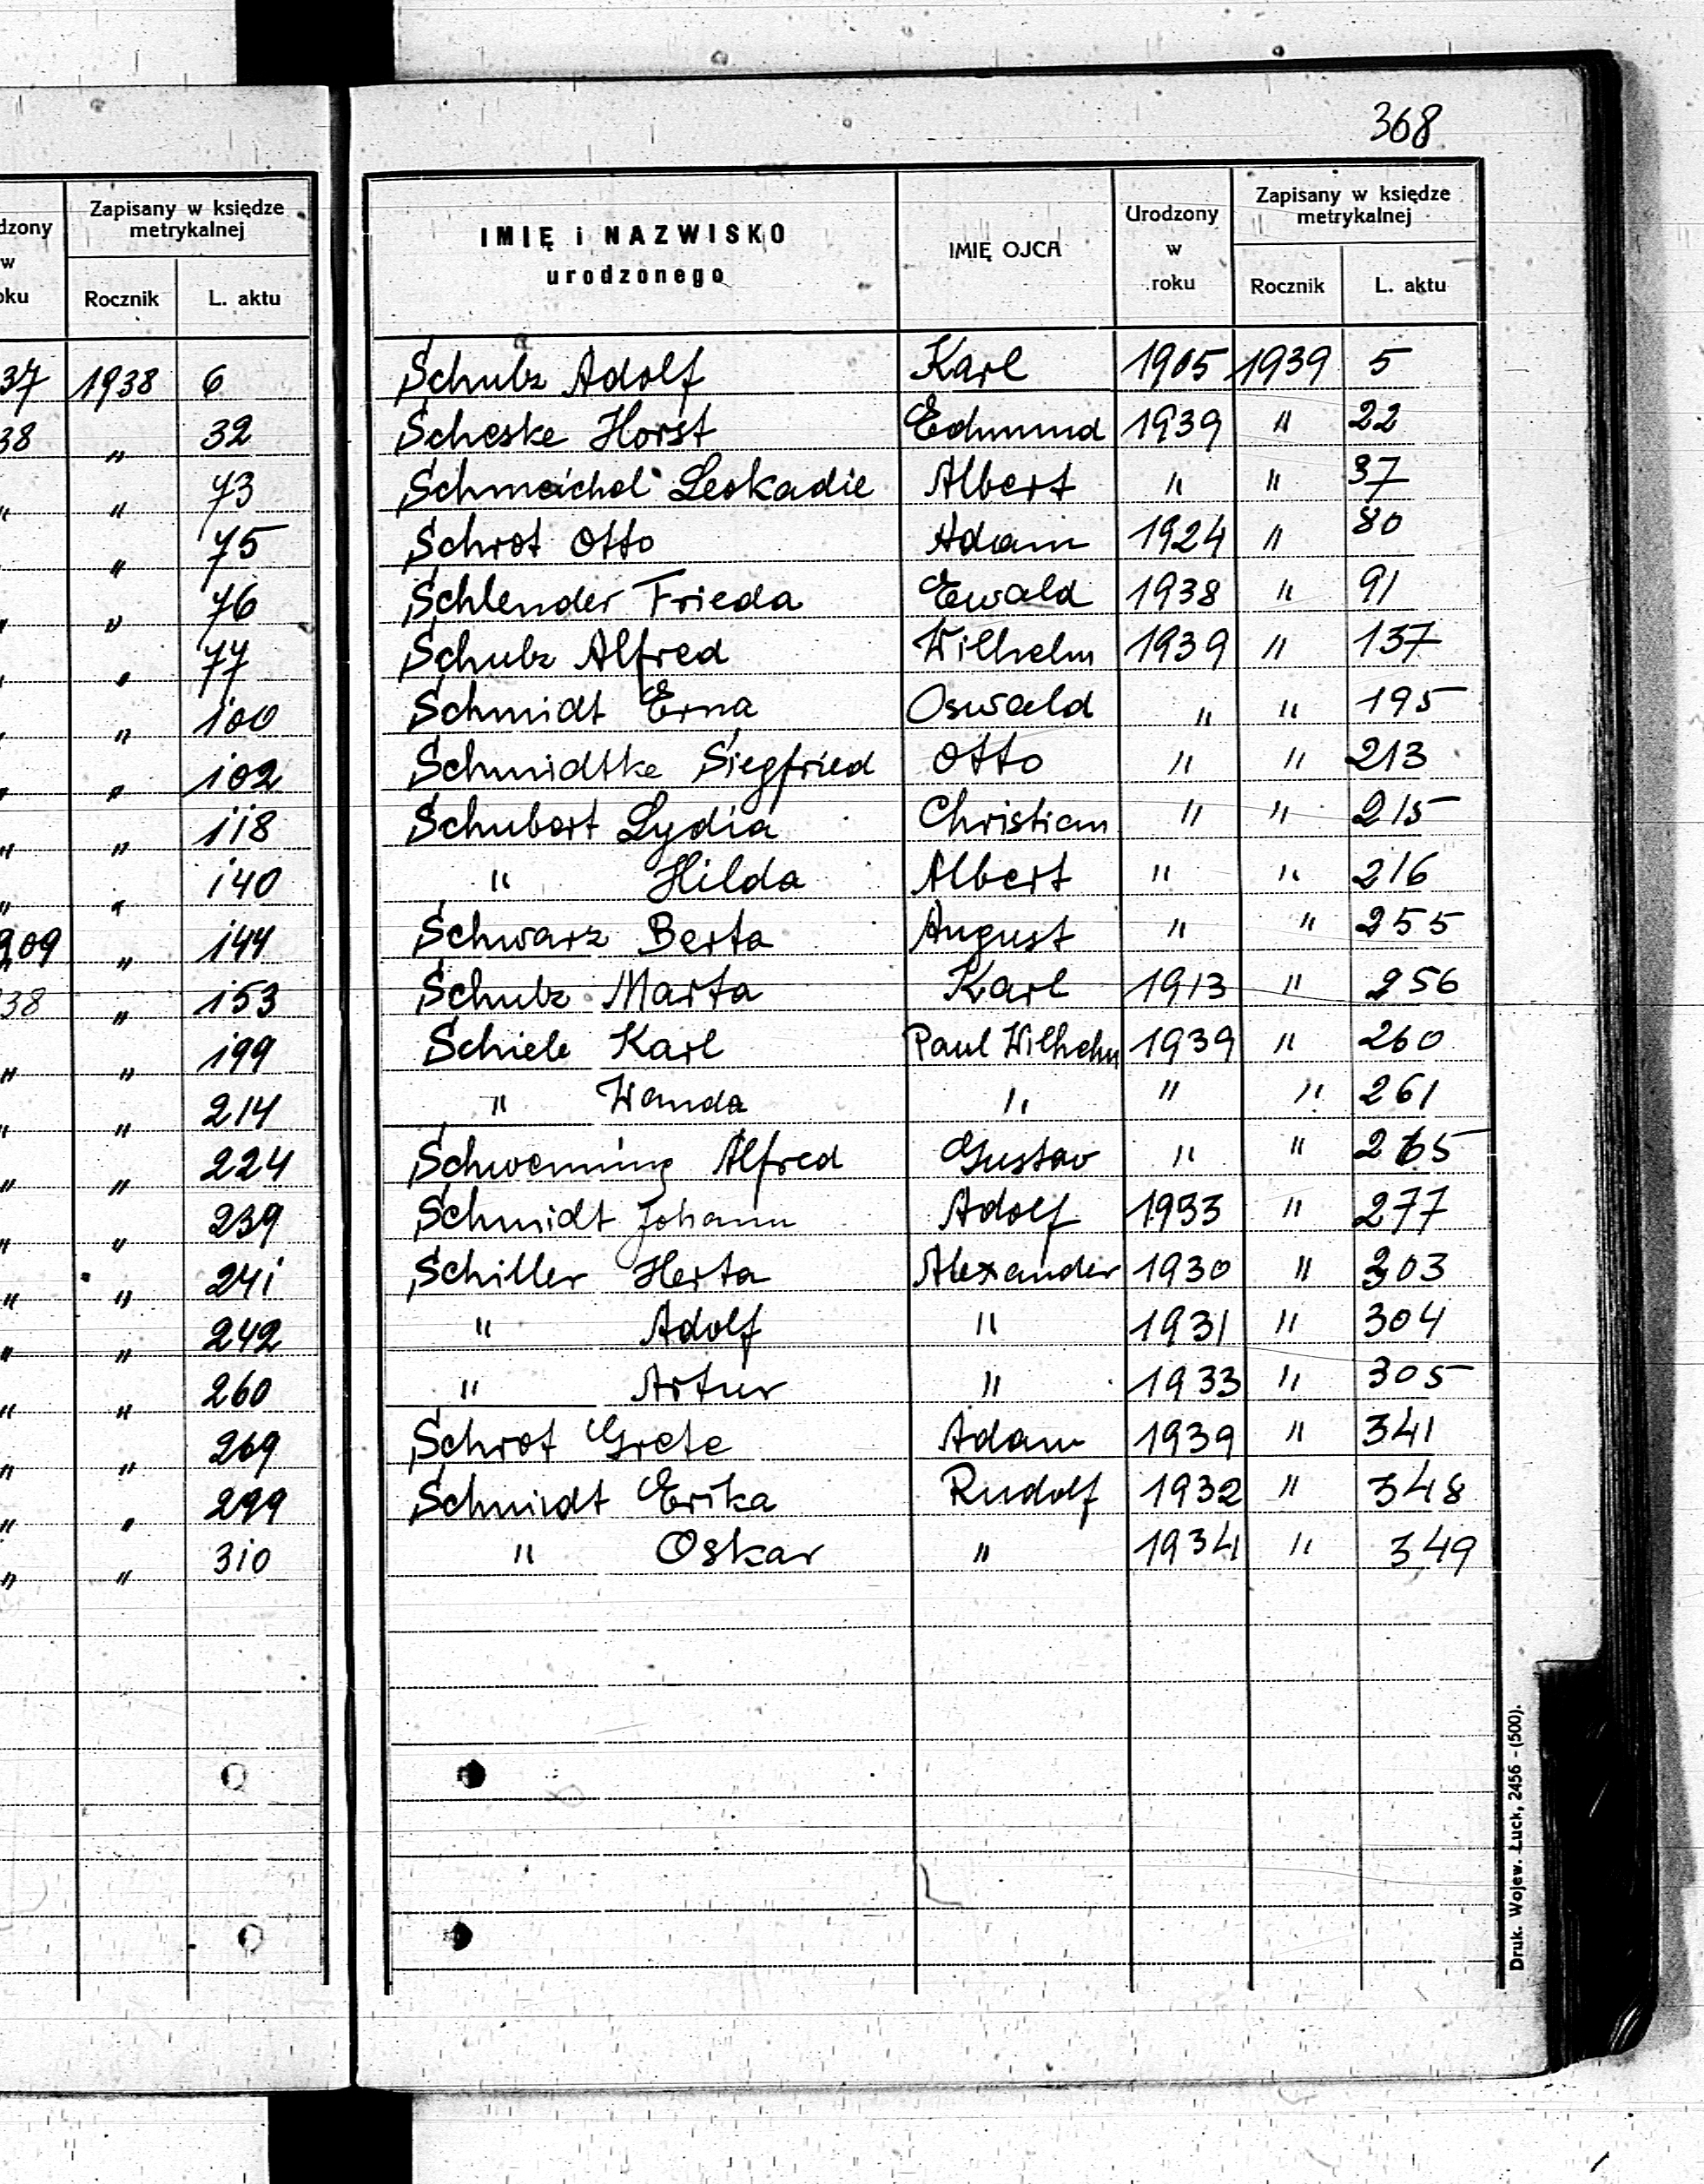 368
dzony
w
oku
Zapisany w księdze
metrykalnej
Rocznik L. aktu
37 1938 6
38 „ 32
„ „ 73
„ 75
„ „ 76
„ „ 77
„ „ 100
„ „ 102
„ „ 118
„ „ 140
909 „ 144
38 „ 153
„ „ 199
„ „ 214
„ „ 224
„ „ 239
„ „ 241
„ „ 242
„ „ 260
„ „ 269
„ „ 299
„ „ 310
IMIĘ i NAZWISKO
urodzonego
IMIĘ OJCA
Urodzony
w
roku
Zapisany w księdze
metrykalnej
Rocznik L. aktu
Schulz Adolf Karl 1905 1939 5
Scheske Horst Edmund 1939 " 22
Schmeichel Leokadie Albert " " 37
Schrot Otto Adam 1924 " 80
Schlender Frieda Ewald 1938 " 91
Schulz Alfred Wilhelm 1939 " 137
Schmidt Erna Oswald " " 195
Schmidtke Siegfried Otto " " 213
Schubert Lydia Christian " " 215
" Hilda Albert " " 216
Schwarz Berta August " " 255
Schulz Marta Karl 1913 " 256
Schiele Karl Paul Wilhelm 1939 " 260
" Wanda " " " 261
Schwenning Alfred Gustav " " 265
Schmidt Johann Adolf 1933 " 277
Schiller Herta Alexander 1930 " 303
" Adolf " 1931 " 304
" Artur " 1933 " 305
Schrot Grete Adam 1939 " 341
Schmidt Erika Rudolf 1932 " 348
" Oskar " 1934 " 349
Druk. Wojew. Łuck, 2456 - (500).